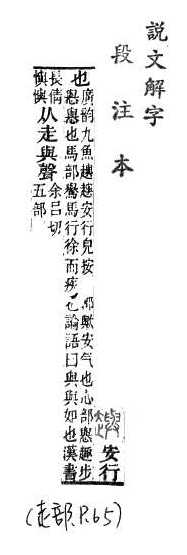 說文解字
段注本
安行
也廣韵九魚趣趣安行皃按歟安气也心部懙趣步
懙懙也馬部馬行徐而疾也論語曰與與如也漢書
長倩懙懙从走與聲余呂切五部
(走部.P.65)